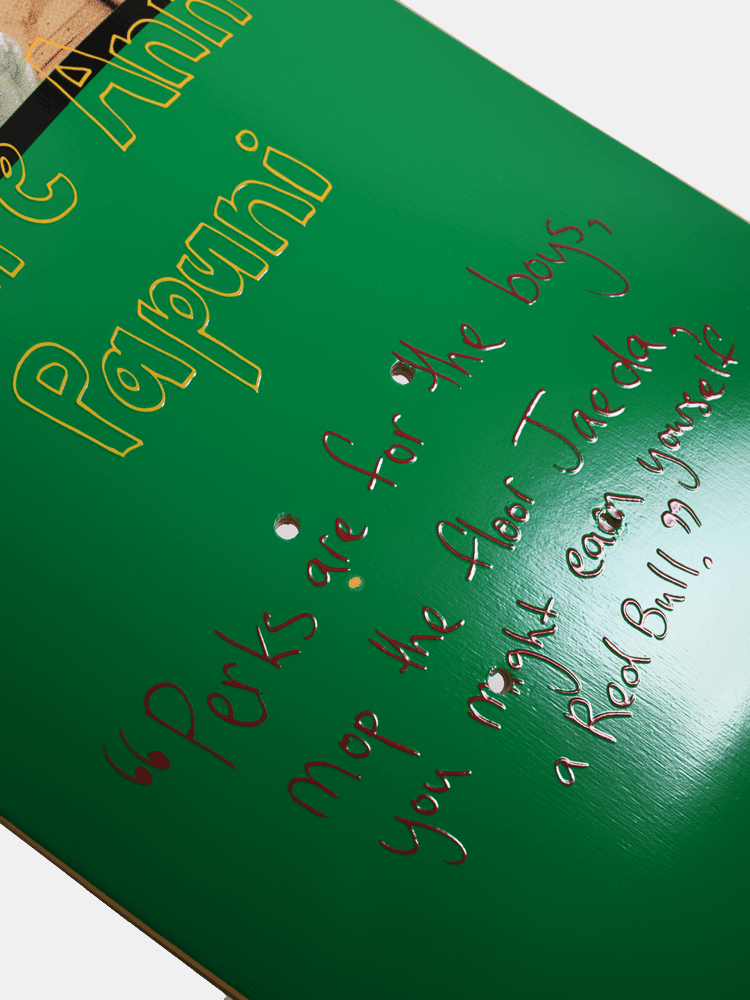 Papuni
“Perks are for the boys,
Mop the floor Jaeda,
you might earn yourself
a Red Bull.”